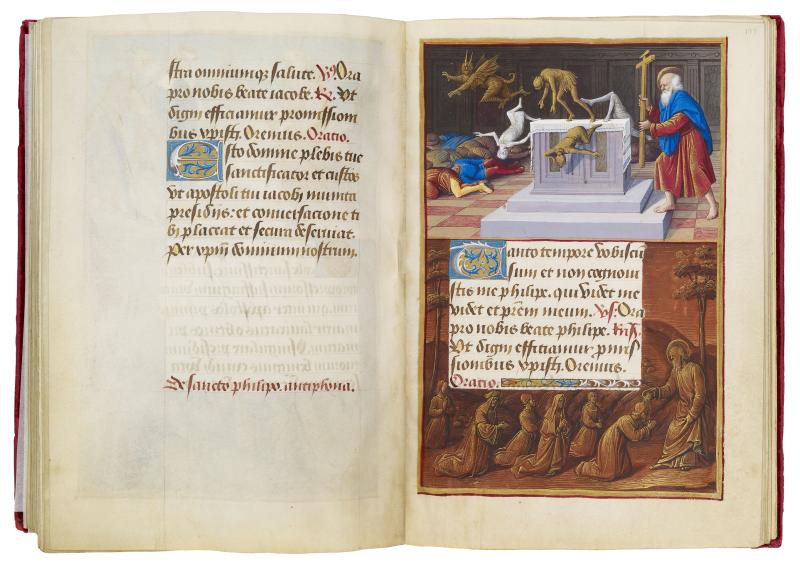 stra omniumq; salute. Vs Ora
pro nobis beate iacobe. Re. Vt
digni efficiamur promission
bus xpisti. Oremus. Oratio.
Esto domine plebis tue
sanctificator et custos
vt apostoli tui iacobi munita
presidijs: et conversacione ti
bi placeat et secura deserviat.
Per xpm dominum nostrum.
De sancto philipo antiphona.
Tanto tempore vobiscū
sum et non cognovi
stis me philipe. qui videt me
videt et prēm meum. Vs: Ora
pro nobis beate philipe. Rs.
Vt digni efficiamur pmis
sionibus xpisti. Oremus.
Oratio.